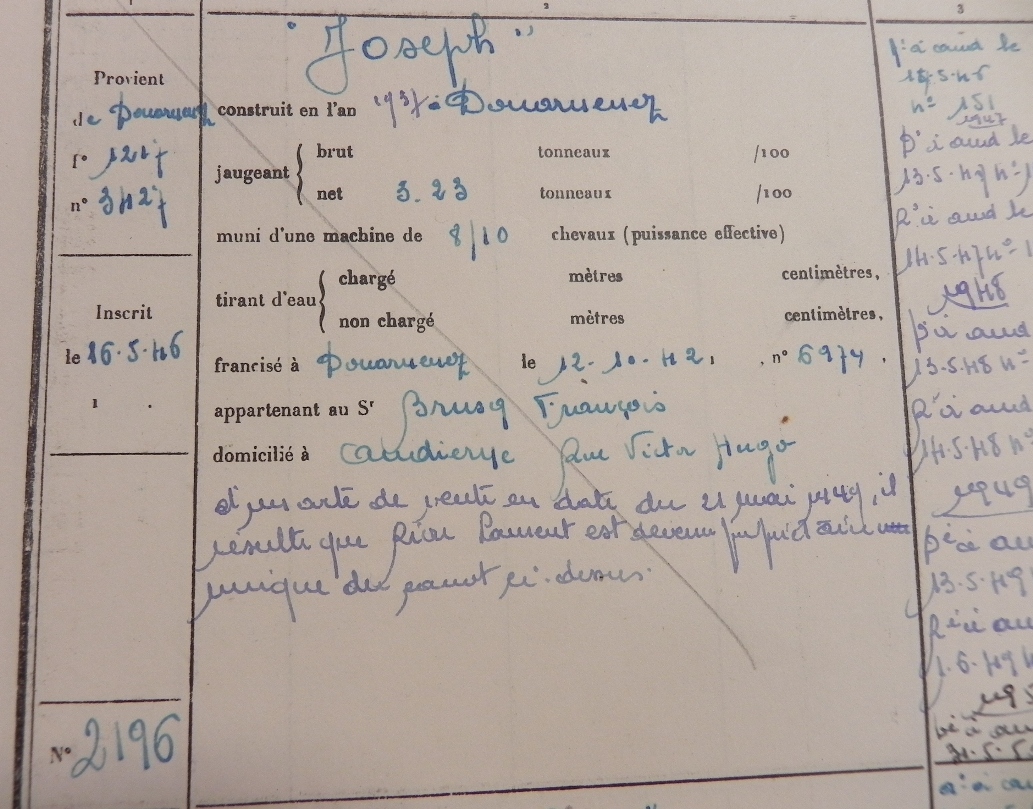 2
3
"Joseph"
Provient
de Douarnenez
f° 1217
n° 3427
Inscrit
le 16.5.46
N° 2196
construit en l'an 1937 à Douarnenez
jaugeant
brut tonneaux /100
net 3.23 tonneaux /100
muni d'une machine de 8/10 chevaux (puissance effective)
tirant d'eau
chargé mètres centimètres,
non chargé mètres centimètres,
francisé à Douarnenez le 12-10-42, n° 6974,
appartenant au Sr Brusq François
domicilié à Audierne Rue Victor Hugo
d'un acte de vente en date du 21 mai 1949, il
résulte que Laurent est devenu propriétaire
unique du canot ci-dessus.
p. à aud le
15.5.46
n° 151
1947
p. à aud le
13.5.47 n°
R. à aud le
14.5.47 n°
1948
p. à aud
13.5.48 n°
R. à aud
14.5.48 n°
1949
p. à au
13.5.49
R. à au
1.6.49